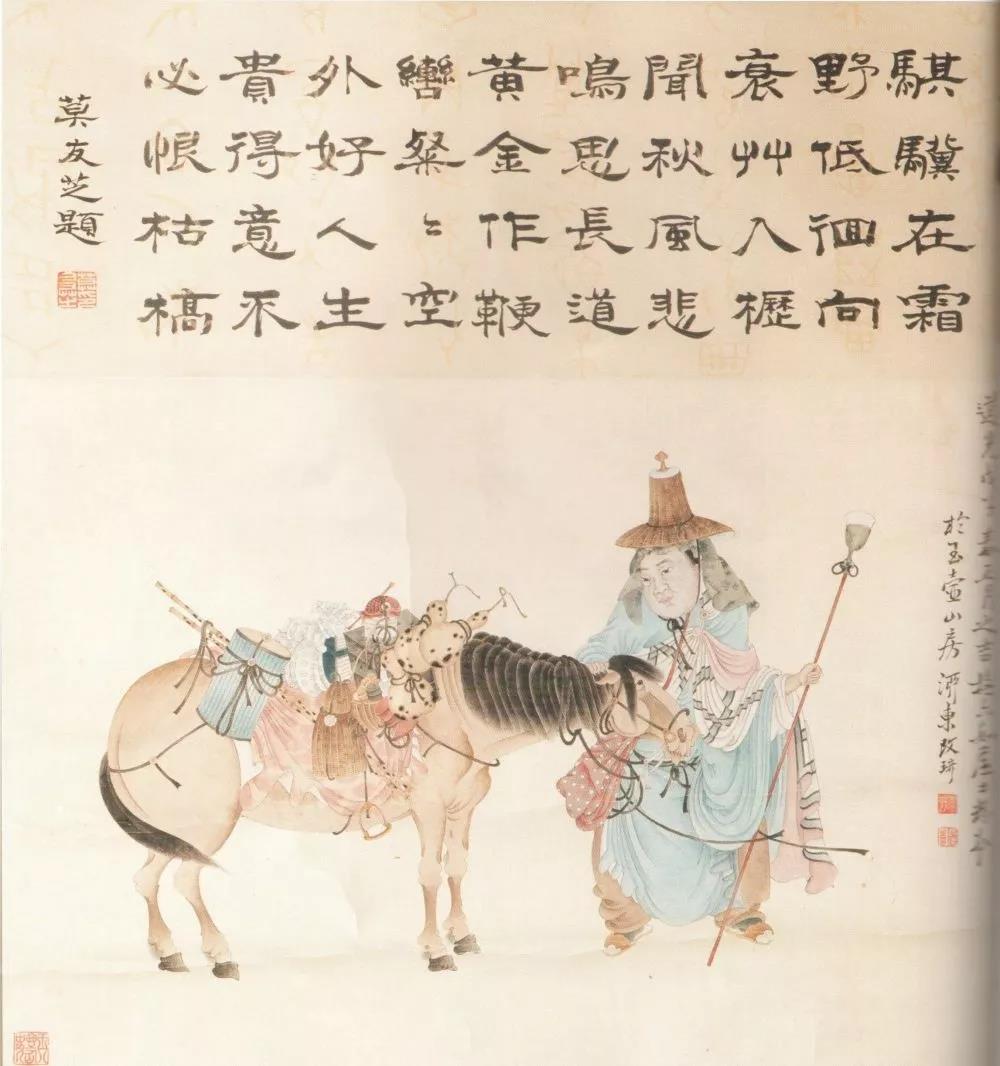 騏驥在霜
野低徊向
衰艸入櫪
聞秋風悲
鳴思長道
黄金作鞭
轡粲〻空
外好人生
貴得意不
必恨枯槁
莫友芝題
正月之吉
於玉壺山房泖東改琦